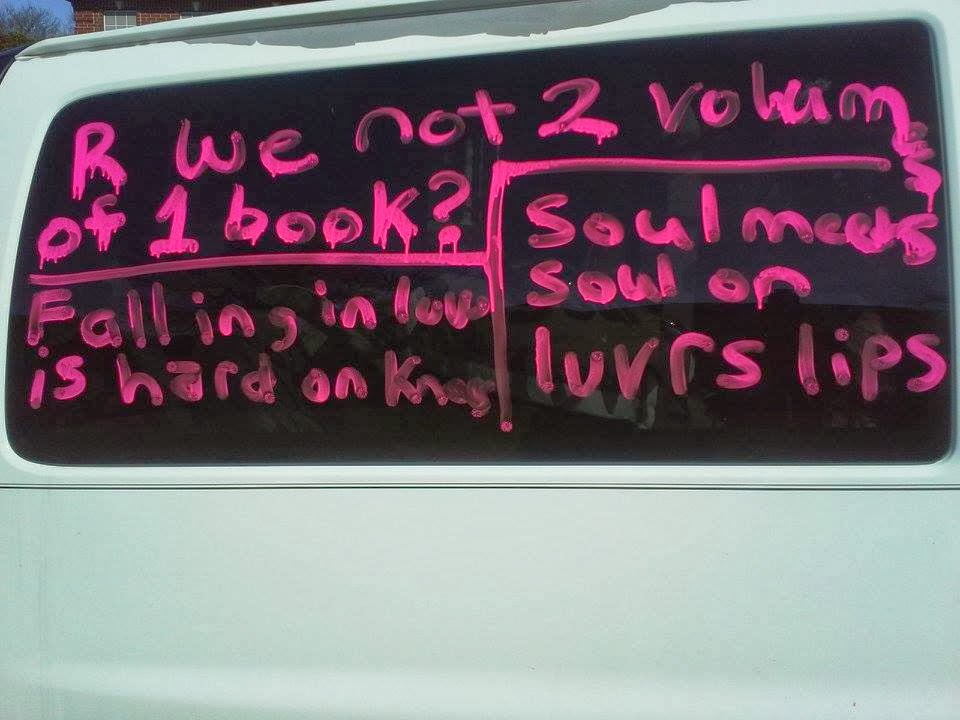 R we not 2 volumes
of 1 book?
Falling in luv
is hard on knees
Soul meets
soul on
luvrs lips